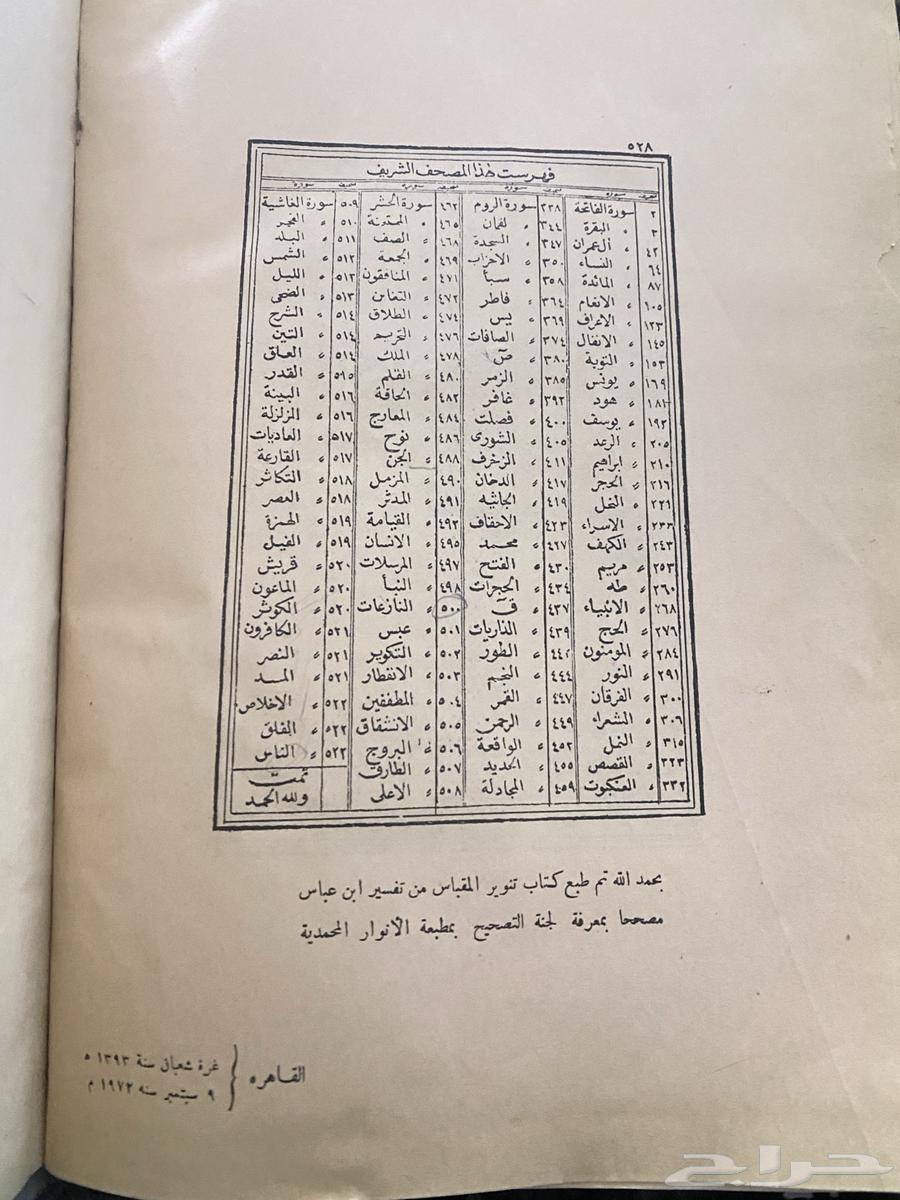 ٥٢٨
فهرست هذا المصحف الشريف
صحيفة سورة
٢ سورة الفاتحة
٣ » البقرة
٤٢ » آل عمران
٦٤ » النساء
٨٧ » المائدة
١٠٥ » الانعام
١٢٣ » الاعراف
١٤٥ » الانفال
١٥٣ » التوبة
١٦٩ » يونس
١٨١ » هود
١٩٢ » يوسف
٢٠٥ » الرعد
٢١٠ » ابراهيم
٢١٦ » الحجر
٢٢١ » النحل
٢٣٣ » الاسراء
٢٤٣ » الكهف
٢٥٣ » مريم
٢٦٠ » طه
٢٦٨ » الانبياء
٢٧٦ » الحج
٢٨٤ » المؤمنون
٢٩١ » النور
٣٠٠ » الفرقان
٣٠٦ » الشعراء
٣١٥ » النمل
٣٢٣ » القصص
٣٣٢ » العنكبوت
صحيفة سورة
٣٣٨ سورة الروم
٣٤٤ » لقمان
٣٤٧ » السجدة
٣٥٠ » الاحزاب
٣٥٨ » سبأ
٣٦٤ » فاطر
٣٦٩ » يس
٣٧٤ » الصافات
٣٨٠ » ص
٣٨٥ » الزمر
٣٩٢ » غافر
٤٠٠ » فصلت
٤٠٥ » الشورى
٤١١ » الزخرف
٤١٧ » الدخان
٤١٩ » الجاثيه
٤٢٣ » الاحقاف
٤٢٧ » محمد
٤٣٠ » الفتح
٤٣٤ » الحجرات
٤٣٧ » ق
٤٣٩ » الذاريات
٤٤٢ » الطور
٤٤٤ » النجم
٤٤٧ » القمر
٤٤٩ » الرحمن
٤٥٢ » الواقعة
٤٥٥ » الحديد
٤٥٩ » المجادلة
صحيفة سورة
٤٦٢ سورة الحشر
٤٦٥ » الممتحنة
٤٦٨ » الصف
٤٦٩ » الجمعة
٤٧١ » المنافقون
٤٧٢ » التغابن
٤٧٤ » الطلاق
٤٧٦ » التحريم
٤٧٨ » الملك
٤٨٠ » القلم
٤٨٢ » الحاقة
٤٨٤ » المعارج
٤٨٦ » نوح
٤٨٨ » الجن
٤٩٠ » المزمل
٤٩١ » المدثر
٤٩٣ » القيامة
٤٩٥ » الانسان
٤٩٧ » المرسلات
٤٩٨ » النبأ
٥٠٠ » النازعات
٥٠١ » عبس
٥٠٢ » التكوير
٥٠٣ » الانفطار
٥٠٤ » المطففين
٥٠٥ » الانشقاق
٥٠٦ » البروج
٥٠٧ » الطارق
٥٠٨ » الاعلى
صحيفة سورة
٥٠٩ سورة الغاشية
٥١٠ » الفجر
٥١١ » البلد
٥١٢ » الشمس
٥١٣ » الليل
٥١٣ » الضحى
٥١٤ » الشرح
٥١٤ » التين
٥١٤ » العلق
٥١٥ » القدر
٥١٦ » البينة
٥١٦ » الزلزلة
٥١٧ » العاديات
٥١٧ » القارعة
٥١٨ » التكاثر
٥١٨ » العصر
٥١٩ » الهمزة
٥١٩ » الفيل
٥٢٠ » قريش
٥٢٠ » الماعون
٥٢٠ » الكوثر
٥٢١ » الكافرون
٥٢١ » النصر
٥٢١ » المسد
٥٢٢ » الاخلاص
٥٢٢ » الفلق
٥٢٢ » الناس
تمت
ولله الحمد
بحمد الله تم طبع كتاب تنوير المقباس من تفسير ابن عباس
مصححا بمعرفة لجنة التصحيح بمطبعة الأنوار المحمدية
القاهره { غرة شعبان سنة ١٣٩٣ ه
٩ سبتمبر سنه ١٩٧٢ م
حراج